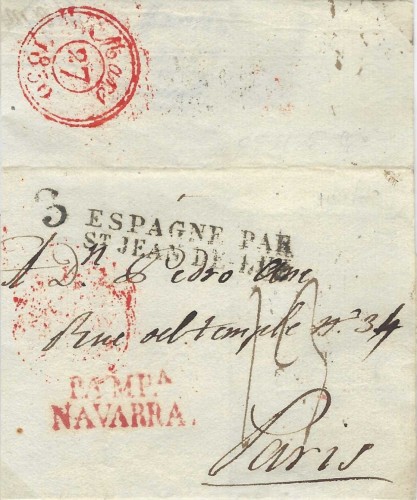 Mars
27
1830
3 ESPAGNE PAR
ST JEAN DE LUZ
A Dn Pedro
Rue del temple no. 34
PAMP.A
NAVARRA.
Paris